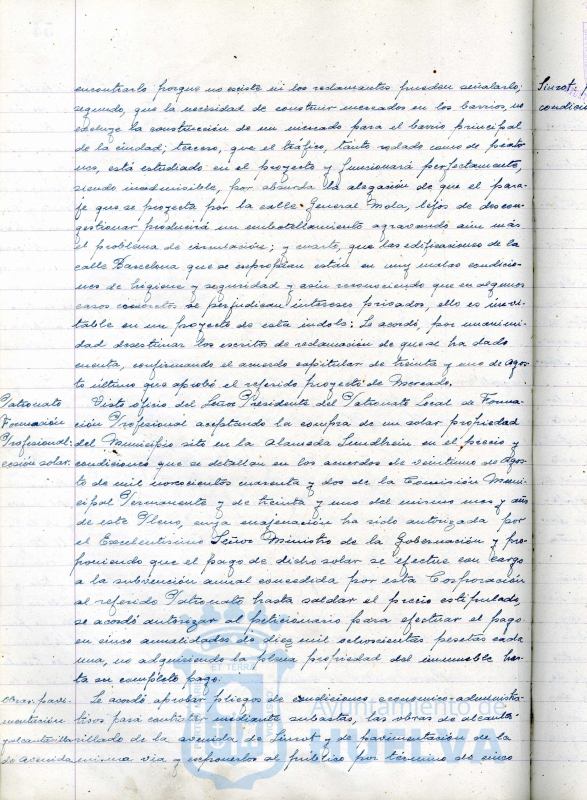 encontrarlo porque no existe ni los reclamantes pueden señalarlo;
segundo, que la necesidad de construir mercados en los barrios, no
excluye la construcción de un mercado para el barrio principal
de la ciudad; tercero, que el tráfico, tanto rodado como de peato
nes, está estudiado en el proyecto y funcionará perfectamente,
siendo inadmisible, por absurda la alegación de que el para-
je que se proyecta por la calle General Mola, lejos de descon
gestionar producirá un embotellamiento agravando aún más
el problema de circulación; y cuarto, que las edificaciones de la
calle Barcelona que se expropian están en muy malas condicio-
nes de higiene y seguridad y aún reconociendo que en algunos
casos concretos se perjudican intereses privados, ello es inevi-
table en un proyecto de esta índole: Se acordó, por unanimi-
dad desestimar los escritos de reclamación de que se ha dado
cuenta, confirmando el acuerdo capitular de treinta y uno de Agos
to último que aprobó el referido proyecto de Mercado.
Patronato
Formación
Profesional:
cesión solar.
Visto oficio del Señor Presidente del Patronato Local de Forma-
ción Profesional aceptando la compra de un solar propiedad
del Municipio sito en la Alameda Sundheim en el precio y
condiciones que se detallan en los acuerdos de veintiuno de Agos
to de mil novecientos cuarenta y dos de la Comisión Muni-
cipal Permanente y de treinta y uno del mismo mes y año
de este Pleno, cuya enajenación ha sido autorizada por
el Excelentísimo Señor Ministro de la Gobernación y pro-
poniendo que el pago de dicho solar se efectue con cargo
a la subvención anual concedida por esta Corporación
al referido Patronato hasta saldar el precio estipulado,
se acordó autorizar al peticionario para efectuar el pago
en cinco anualidades de diez mil ochocientas pesetas cada
una, no adquiriendo la plena propiedad del inmueble has-
ta su completo pago.
Obras pavi-
mentación
y alcantarilla
do Avenida
Se acordó aprobar pliegos de condiciones económico-administra-
tivos para contratar mediante subasta, las obras de alcanta-
rillado de la avenida de Siurot y de pavimentación de la
misma vía y exponerlos al público por término de cinco
Siurot:
condicio
Ayuntamiento de
HUELVA